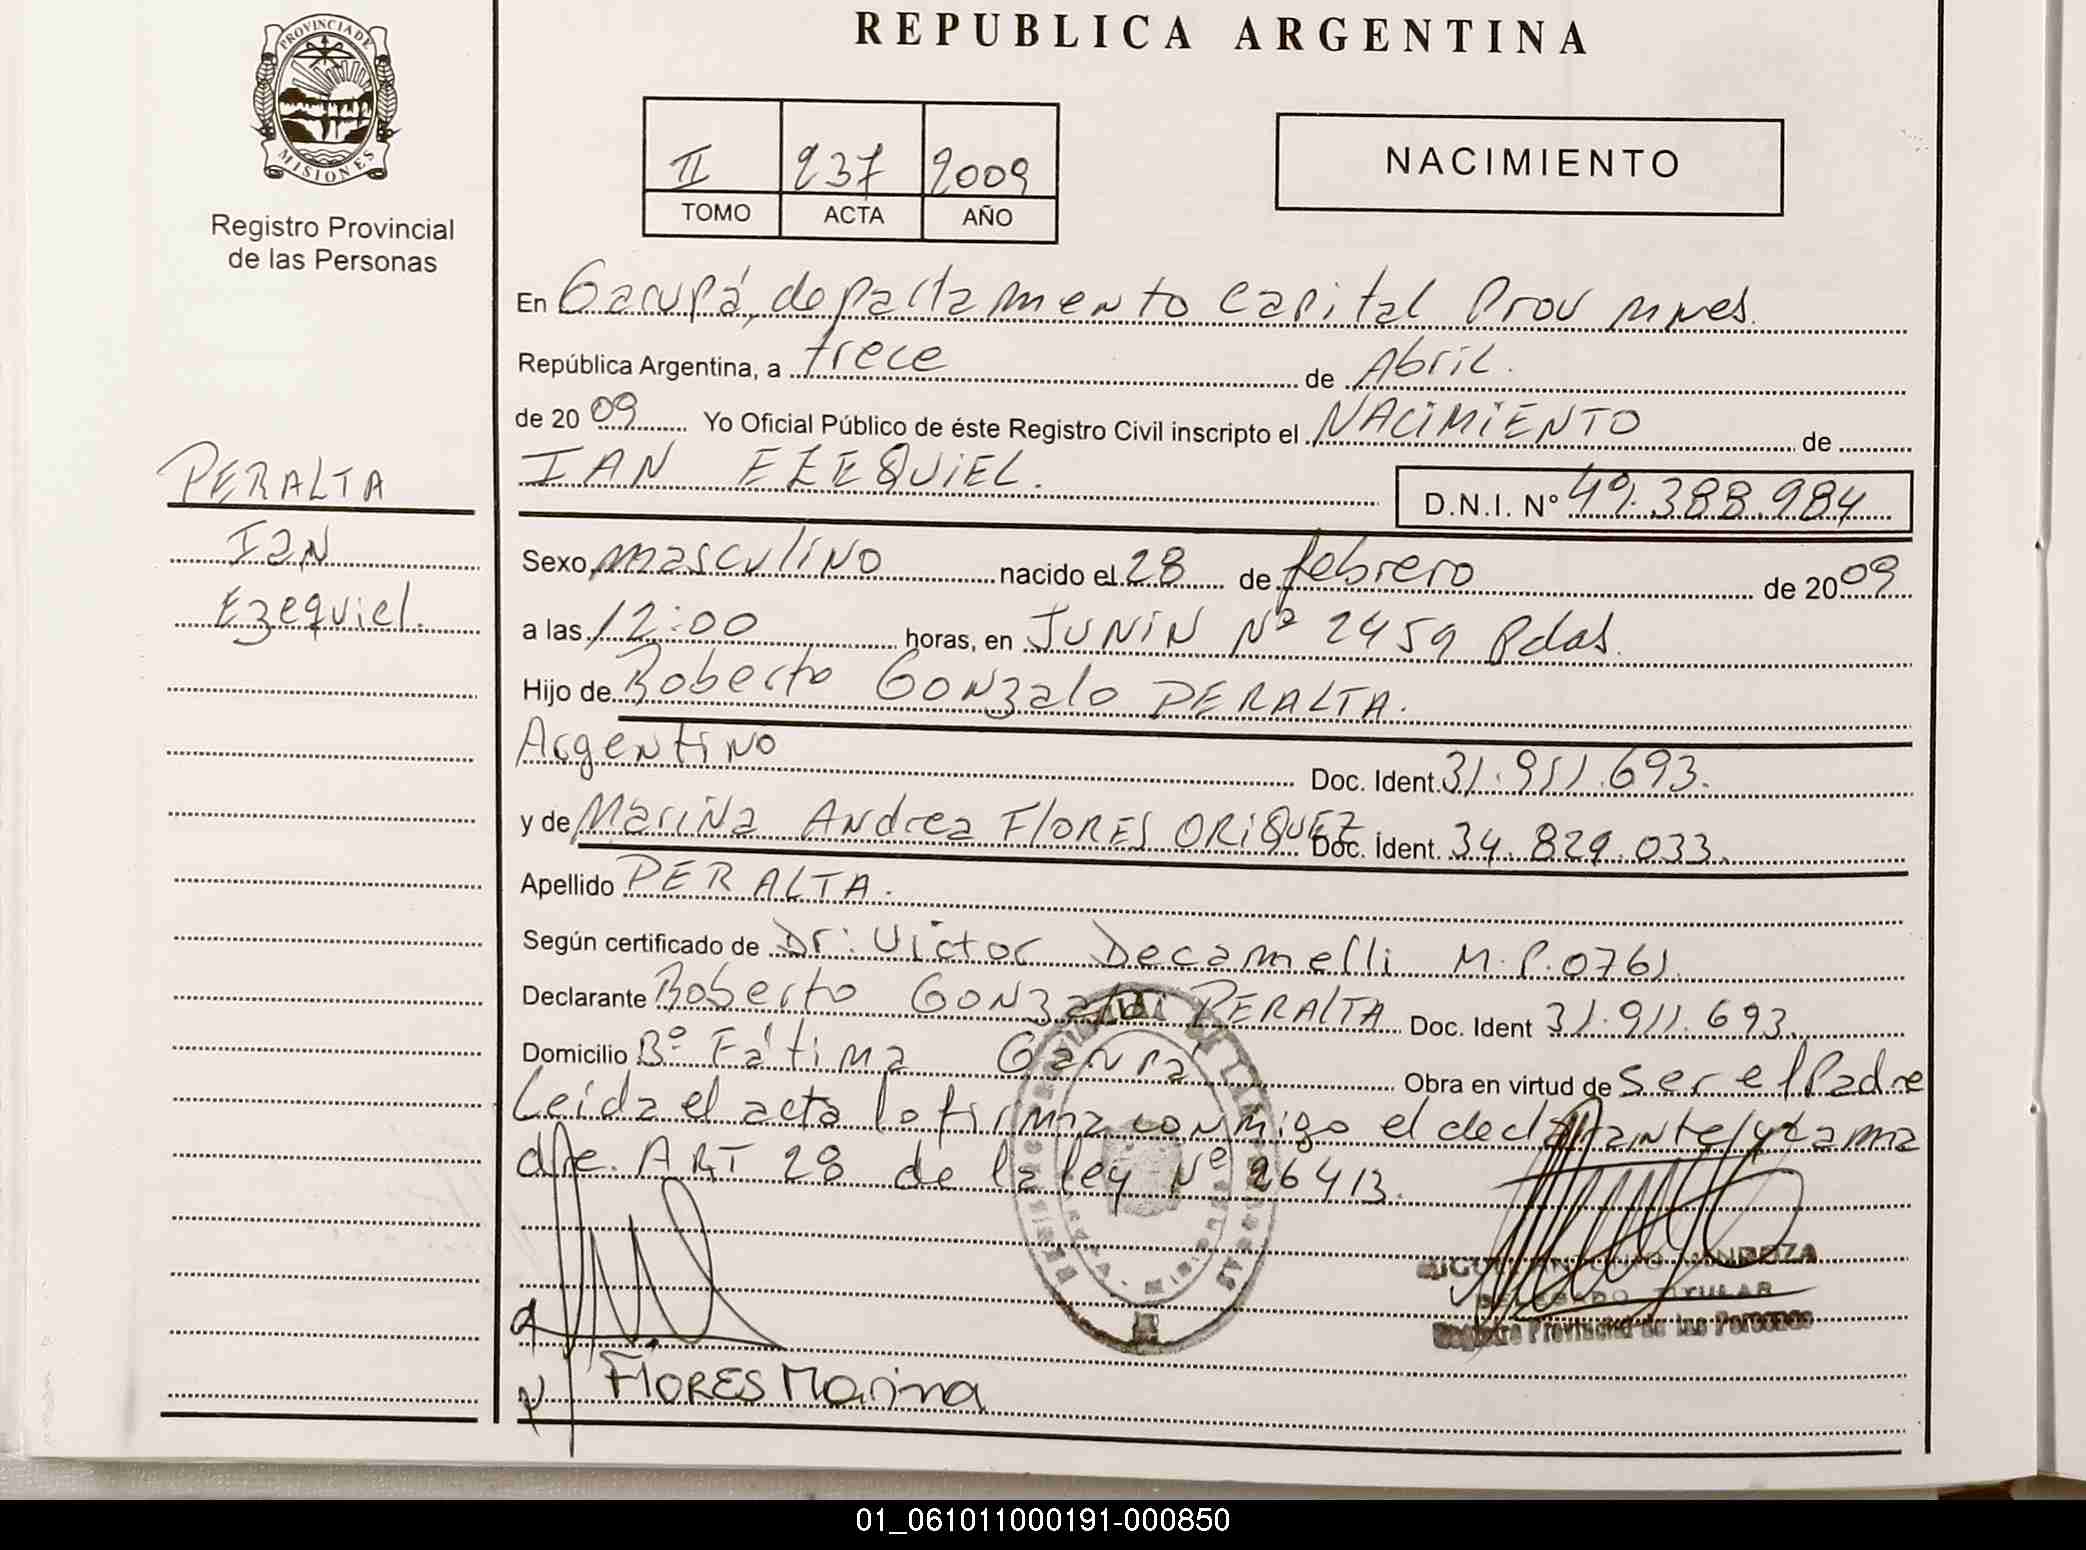 REPUBLICA ARGENTINA
PROVINCIA DE
MISIONES
Registro Provincial
de las Personas
II 237 2009
TOMO ACTA AÑO
NACIMIENTO
En Garupá, departamento Capital Prov Mnes.
República Argentina, a trece de Abril.
de 2009 Yo Oficial Público de éste Registro Civil inscripto el NACIMIENTO de
IAN EZEQUIEL.
D.N.I. Nº 49.388.984
PERALTA
Ian
Ezequiel.
Sexo masculino nacido el 28 de febrero de 2009
a las 12:00 horas, en JUNIN Nº 2459 Pdas.
Hijo de Roberto Gonzalo PERALTA.
Argentino Doc. Ident. 31.911.693.
y de Marina Andrea FLORES ORIQUEZ Doc. Ident. 34.829.033.
Apellido PERALTA.
Según certificado de Dr: Victor Decamelli M.P. 0761.
Declarante Roberto Gonzalo PERALTA Doc. Ident 31.911.693.
Domicilio Bº Fátima Garupá Obra en virtud de ser el Padre
Leída el acta la firma conmigo el declarante/y la ma
dre. ART 28 de la ley Nº 26413.
MIGUEL ANTONIO MENDOZA
DELEGADO TITULAR
Registro Provincial de las Personas
FlORES Marina
01_061011000191-000850